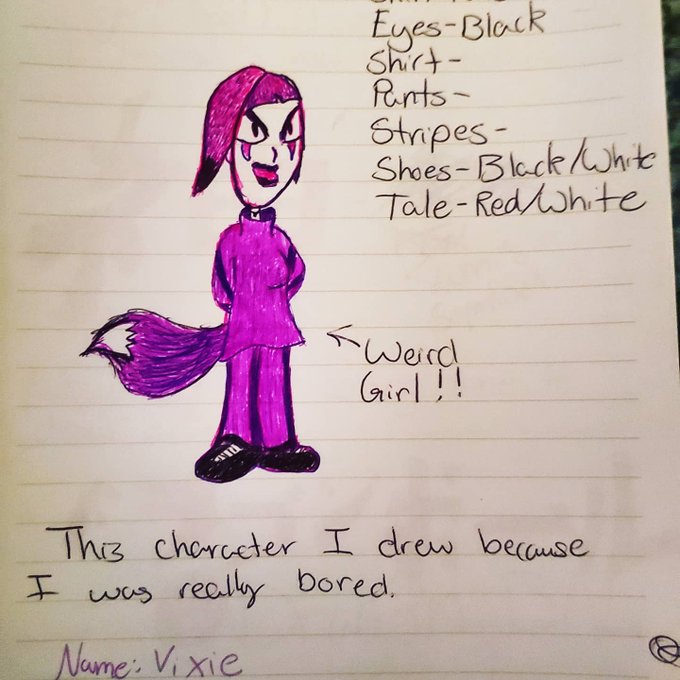 Eyes-Black
Shirt-
Pants-
Stripes-
Shoes-Black/White
Tale-Red/White
←Weird
Girl!!
This character I drew because
I was really bored.
Name: Vixie